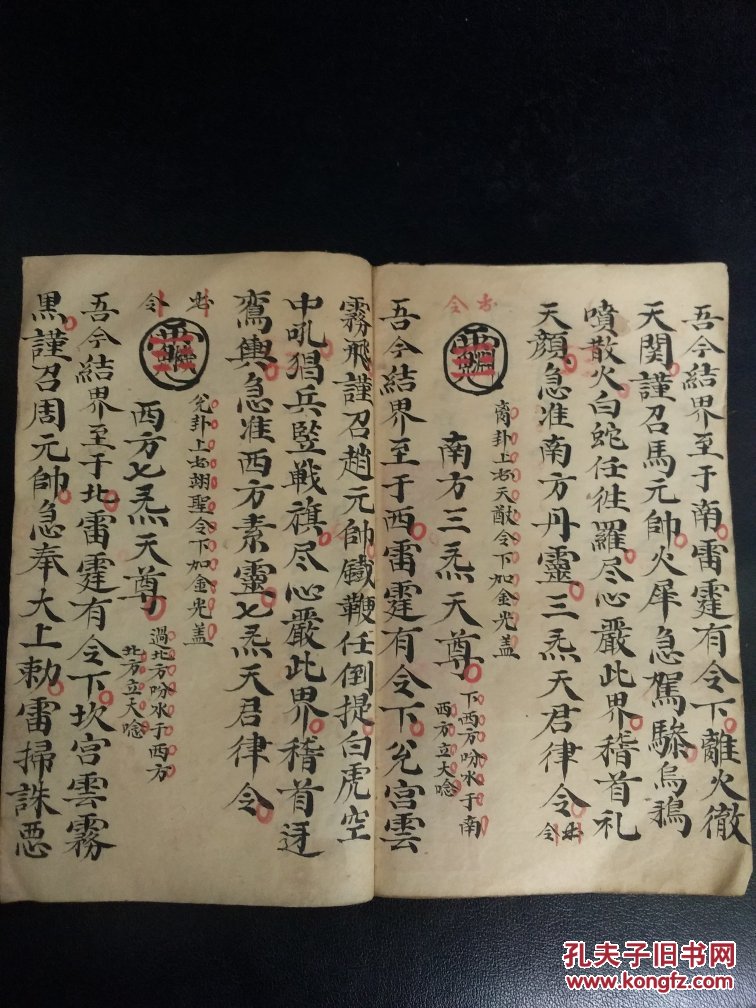 吾今結界至于南雷霆有令下離火徹
天関謹召馬元帥火犀急駕騄烏鴉
噴散火白蛇任徃羅尽心嚴此界稽首礼
天顔急准南方丹靈三炁天君律令
令
令
离卦上书天猷令下加金光盖
南方三炁天尊
下西方吩水于南
西方立大唸
吾今結界至于西雷霆有令下兌宮雲
霧飛謹召趙元帥鐡鞭任倒提白虎空
中吼猖兵竪戦旗尽心嚴此界稽首迓
鸞輿急准西方素靈七炁天君律令
令
兊卦上书翊聖令下加金光盖
西方七炁天尊
過北方吩水于西方
北方立大唸
吾今結界至于北雷霆有令下坎宮雲霧
黒謹召周元帥急奉大上勅雷掃誅惡
孔夫子旧书网
www.kongfz.com